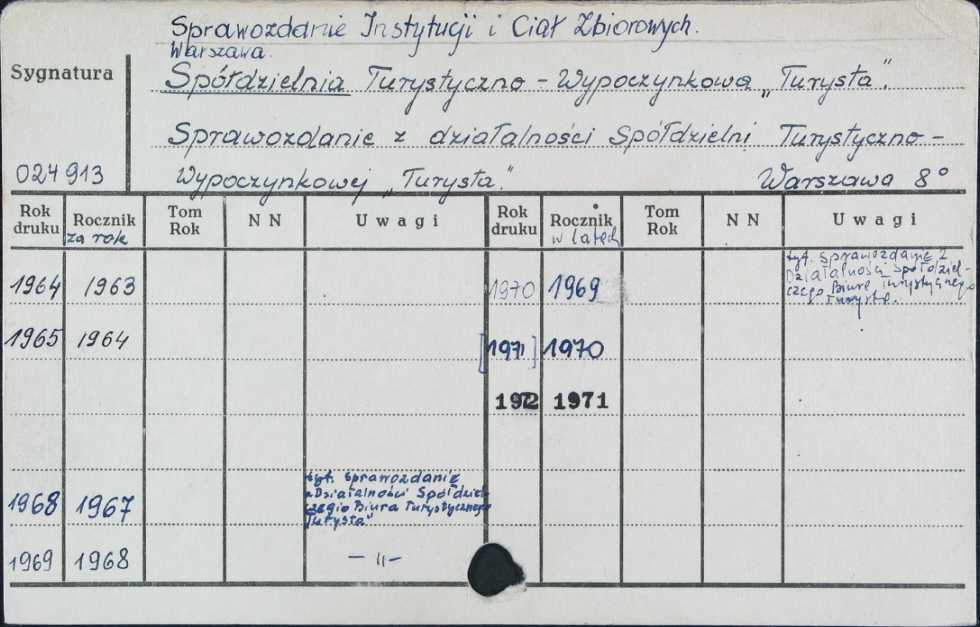 Sprawozdanie Instytucji i Ciał Zbiorowych.
Warszawa.
Sygnatura
Spółdzielnia Turystyczno - Wypoczynkowa „Turysta".
Sprawozdanie z działalności Spółdzielni Turystyczno -
024913
Wypoczynkowej „Turysta." Warszawa 8°
Rok druku Rocznik za rok Tom Rok N N Uwagi Rok druku Rocznik w latach Tom Rok N N Uwagi
1964 1963 1970 1969 tyt. Sprawozdanie z
Działalności Spółdziel-
czego Biura Turystycznego
Turysta.
1965 1964 [1971] 1970
1972 1971
1968 1967 tyt. Sprawozdanie
z Działalności Spółdziel-
czego Biura Turystycznego
"Turysta"
1969 1968 — 11 —